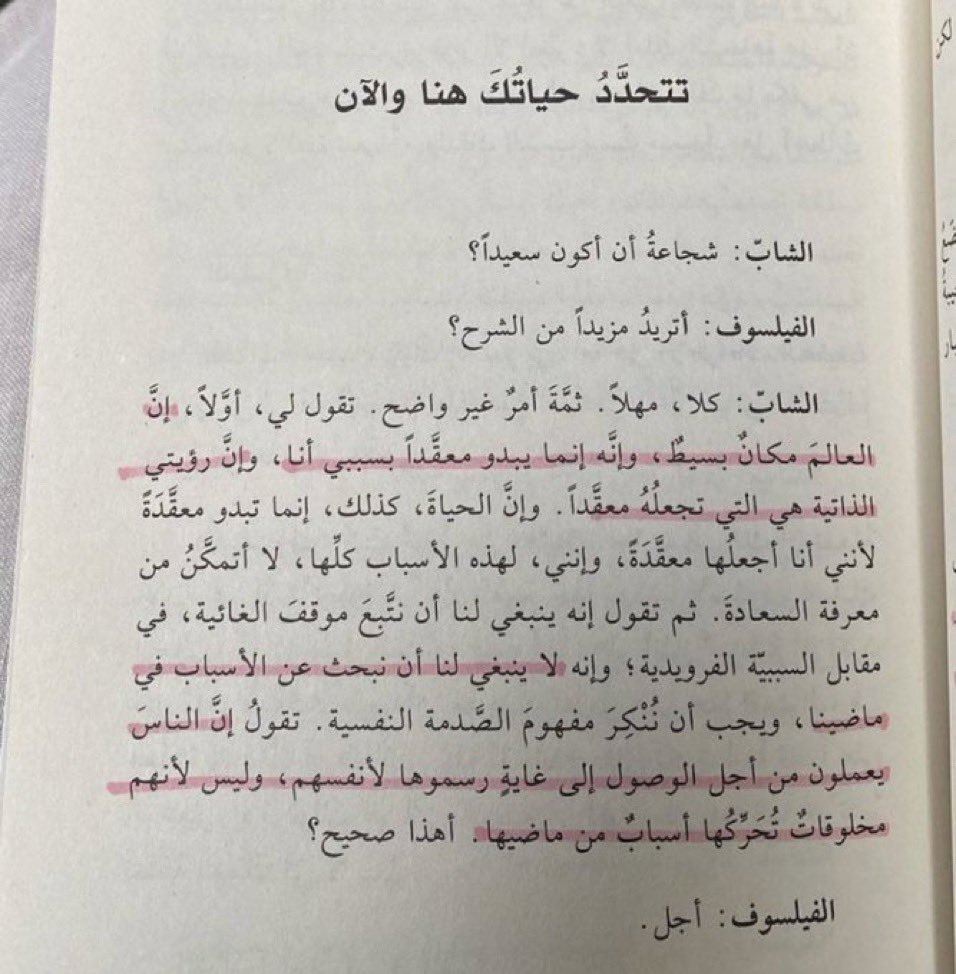 تتحدَّدُ حياتُكَ هنا والآن
الشابّ: شجاعةُ أن أكون سعيداً؟
الفيلسوف: أتريدُ مزيداً من الشرح؟
الشابّ: كلا، مهلاً. ثمَّةَ أمرٌ غير واضح. تقول لي، أوَّلاً، إنَّ
العالمَ مكانٌ بسيطٌ، وإنَّه إنما يبدو معقَّداً بسببي أنا، وإنَّ رؤيتي
الذاتية هي التي تجعلُهُ معقَّداً. وإنَّ الحياةَ، كذلك، إنما تبدو معقَّدَةً
لأنني أنا أجعلُها معقَّدَةً، وإنني، لهذه الأسباب كلِّها، لا أتمكَّنُ من
معرفة السعادةَ. ثم تقول إنه ينبغي لنا أن نتَّبِعَ موقفَ الغائية، في
مقابل السببيّة الفرويدية؛ وإنه لا ينبغي لنا أن نبحث عن الأسباب في
ماضينا، ويجب أن نُنْكِرَ مفهومَ الصَّدمة النفسية. تقولُ إنَّ الناسَ
يعملون من أجل الوصول إلى غايةٍ رسموها لأنفسهم، وليس لأنهم
مخلوقاتٌ تُحَرِّكُها أسبابٌ من ماضيها. أهذا صحيح؟
الفيلسوف: أجل.
لكن